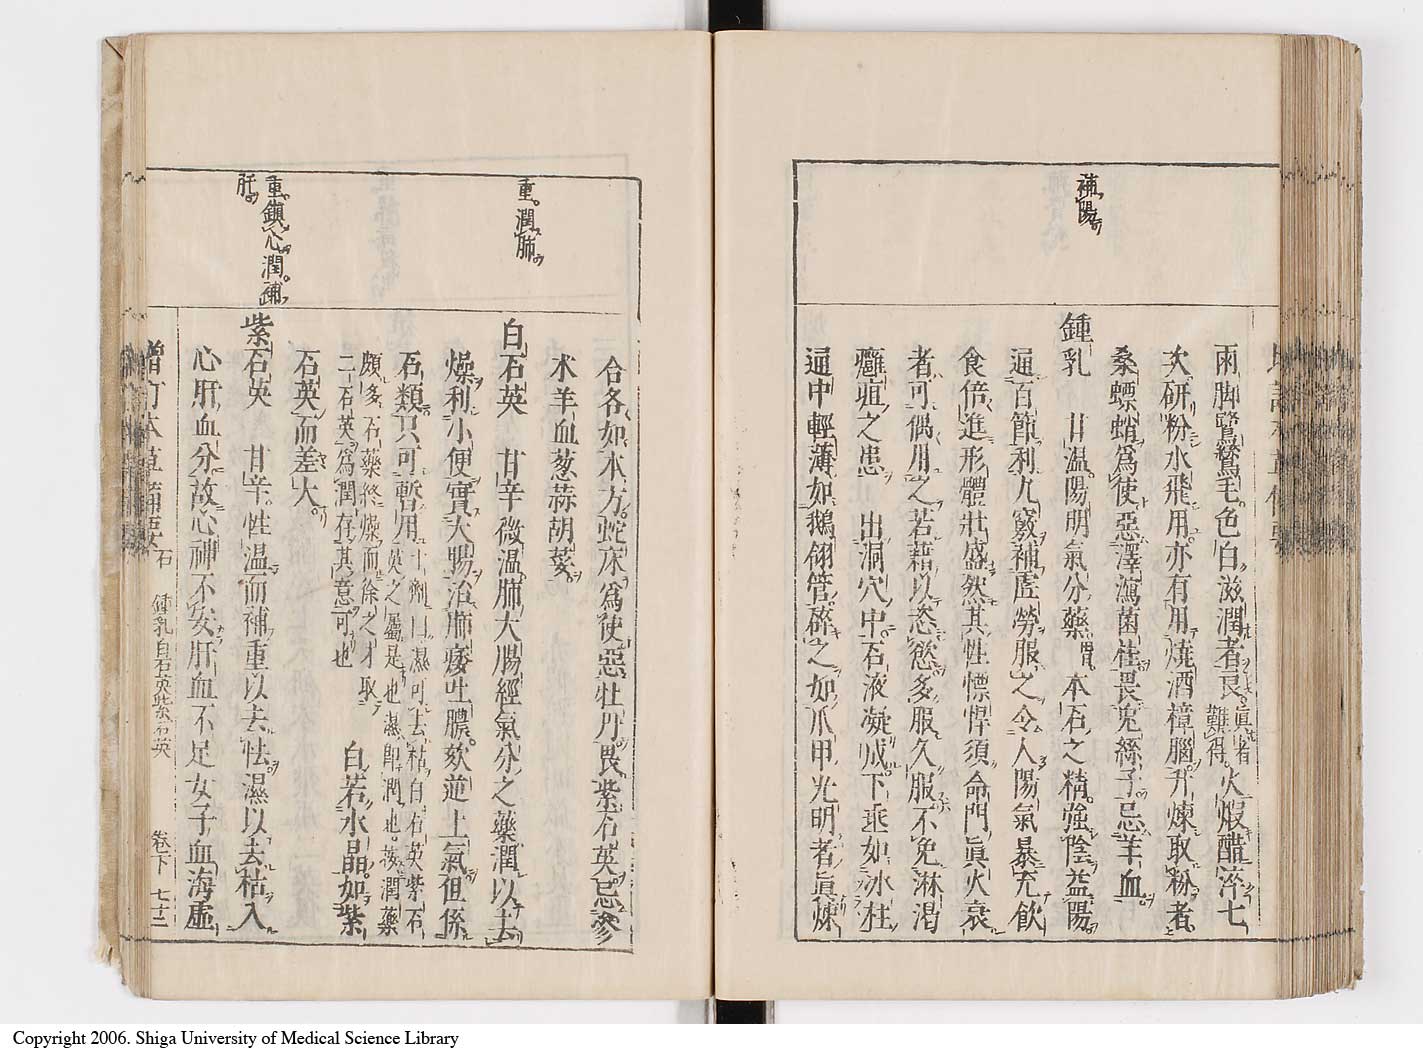 補陽
兩脚鷺鷥毛色白滋潤者良眞者難得火煆醋淬七
次研粉水飛用亦有用燒酒樟腦升煉取粉者
桑螵蛸爲使惡澤瀉菌桂畏兔絲子忌羊血
鍾乳 甘溫陽明氣分藥胃本石之精強陰益陽
通百節利九竅補虛勞服之令人陽氣暴充飲
食倍進形體壯盛然其性慓悍須命門眞火衰
者可偶用之若藉以恣慾多服久服不免淋渴
癰疽之患 出洞穴中石液凝成下垂如冰柱
通中輕薄如鵝翎管碎之如爪甲光明者眞煉
重潤肺
重鎮心潤補
肝
合各如本方蛇床爲使惡牡丹畏紫石英忌參
朮羊血葱蒜胡荽
白石英 甘辛微溫肺大腸經氣分之藥潤以去
燥利小便實大腸治肺痿吐膿欬逆上氣但係
石類只可暫用十劑曰濕可去枯白石英紫石英之屬是也濕卽潤也按潤藥
頗多石藥終燥而徐之才取二石英爲潤存其意可也 白若水晶如紫
石英而差大
紫石英 甘辛性溫而補重以去怯濕以去枯入
心肝血分故心神不安肝血不足女子血海虛
增訂本草備要 石 鍾乳白石英紫石英 卷下 七十二
Copyright 2006. Shiga University of Medical Science Library